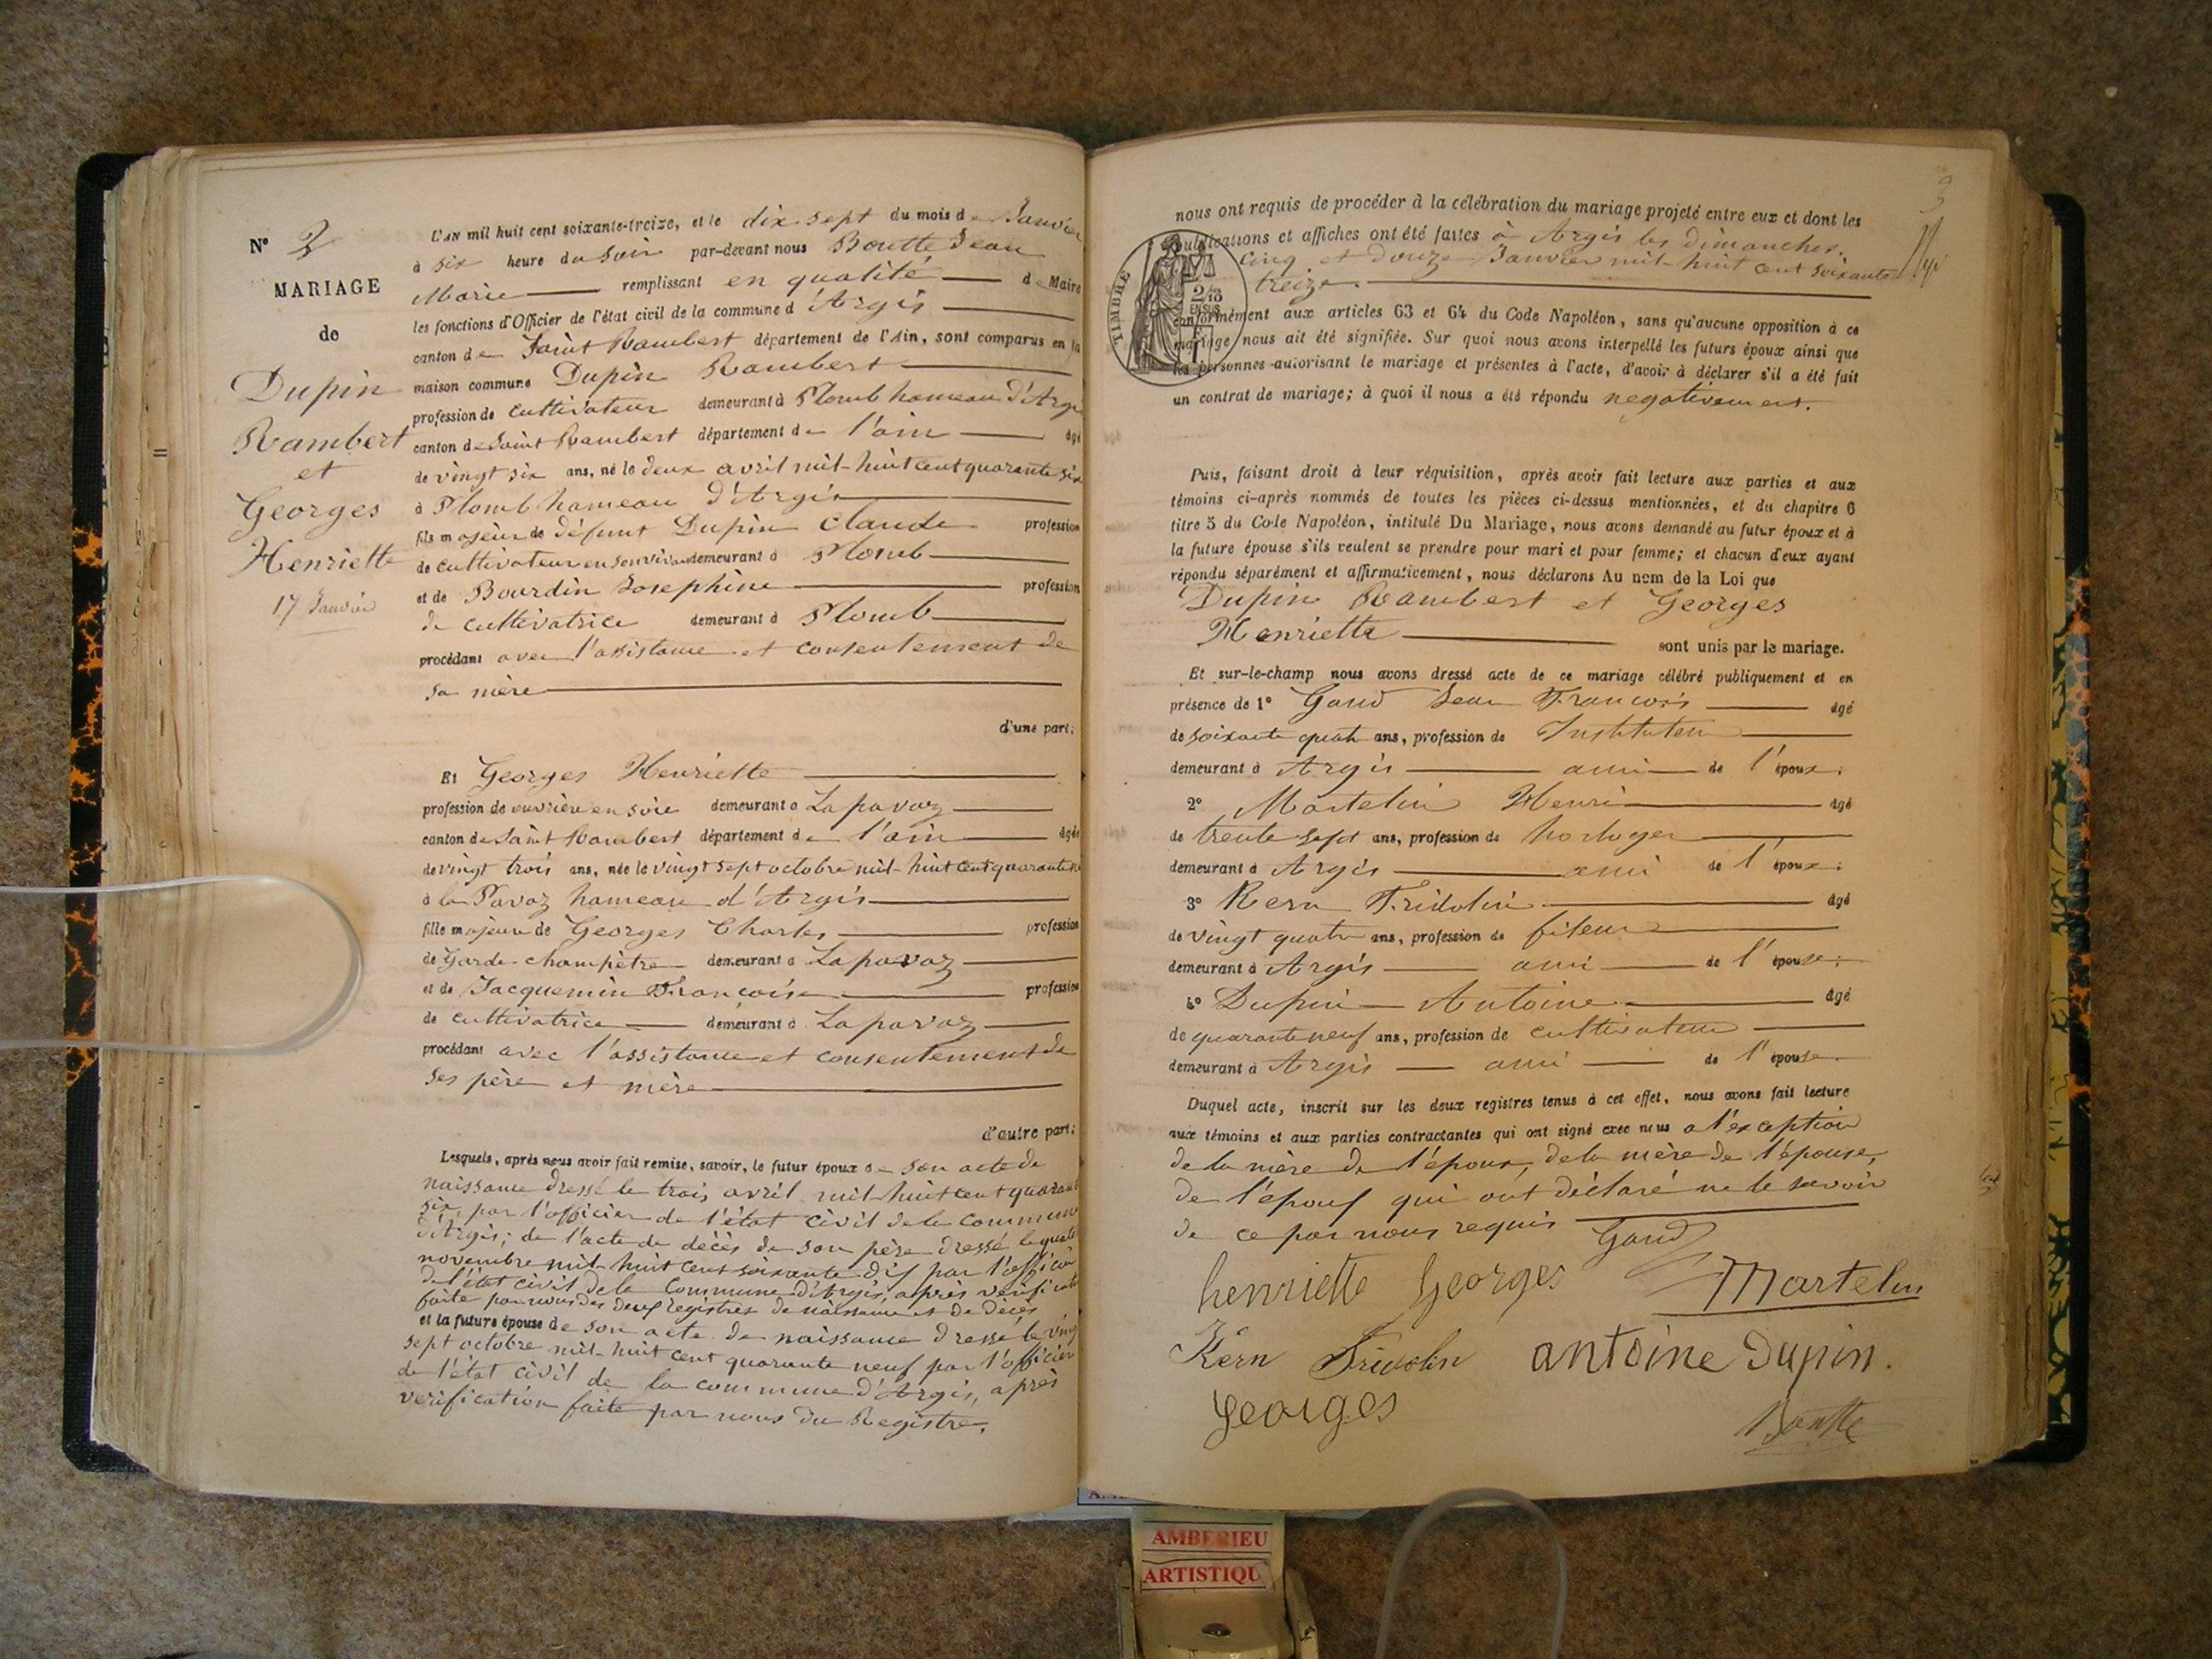 N° 2
MARIAGE
de
Dupin
Rambert
et
Georges
Henriette
17 Janvier
L'AN mil huit cent soixante-treize, et le dix sept du mois de Janvier
à six heure du soir par-devant nous Boutte Jean
Marie remplissant en qualité de Maire
les fonctions d'Officier de l'état civil de la commune d'Argis
canton de Saint Rambert département de l'Ain, sont comparus en la
maison commune Dupin Rambert
profession de cultivateur demeurant à Plomb hameau d'Argis
canton de Saint Rambert département de l'ain âgé
de vingt six ans, né le deux avril mil-huit cent quarante six
à Plomb hameau d'Argis
fils majeur de défunt Dupin Claude profession
de cultivateur en son vivant demeurant à Plomb
et de Bourdin Josephine profession
de cultivatrice demeurant à Plomb
procédant avec l'assistance et consentement de
sa mère
d'une part;
Et Georges Henriette
profession de ouvrière en soie demeurant à Lapavaz
canton de Saint Rambert département de l'ain âgée
de vingt trois ans, née le vingt sept octobre mil-huit cent quarante
à la Pavaz hameau d'Argis
fille majeure de Georges Charles profession
de Garde-champêtre demeurant à Lapavaz
et de Jacquemin Françoise profession
de cultivatrice demeurant à Lapavaz
procédant avec l'assistance et consentement de
ses père et mère
d'autre part;
Lesquels, après nous avoir fait remise, savoir, le futur époux de son acte de
naissance dressé le trois avril mil-huit cent quarante
six, par l'officier de l'état civil de la commune
d'Argis; de l'acte de décès de son père dressé le quatre
novembre mil-huit cent soixante-dix par l'officier
de l'état civil de la Commune d'Argis, après vérification
faite par nous des deux registres de naissance et de décès
et la future épouse de son acte de naissance dressé le vingt
sept octobre mil-huit cent quarante neuf par l'officier
de l'état civil de la commune d'Argis, après
verification faite par nous du Registre.
3
nous ont requis de procéder à la célébration du mariage projeté entre eux et dont les
publications et affiches ont été faites à Argis les dimanches
cinq et douze Janvier mil-huit cent soixante
treize.
TIMBRE
2/10
EN SUS
conformément aux articles 63 et 64 du Code Napoléon, sans qu'aucune opposition à ce
mariage nous ait été signifiée. Sur quoi nous avons interpellé les futurs époux ainsi que
les personnes autorisant le mariage et présentes à l'acte, d'avoir à déclarer s'il a été fait
un contrat de mariage; à quoi il nous a été répondu negativement.
Puis, faisant droit à leur réquisition, après avoir fait lecture aux parties et aux
témoins ci-après nommés de toutes les pièces ci-dessus mentionnées, et du chapitre 6
titre 5 du Code Napoléon, intitulé Du Mariage, nous avons demandé au futur époux et à
la future épouse s'ils veulent se prendre pour mari et pour femme; et chacun d'eux ayant
répondu séparément et affirmativement, nous déclarons Au nom de la Loi que
Dupin Rambert et Georges
Henriette sont unis par le mariage.
Et sur-le-champ nous avons dressé acte de ce mariage célébré publiquement et en
présence de 1° Gaud Jean François âgé
de soixante quatre ans, profession de Instituteur
demeurant à Argis ami de l'époux;
2° Martelin Henri âgé
de trente sept ans, profession de horloger
demeurant à Argis ami de l'époux;
3° Kern Fridolin âgé
de vingt quatre ans, profession de fileur
demeurant à Argis ami de l'épouse;
4° Dupin Antoine âgé
de quarante neuf ans, profession de cultivateur
demeurant à Argis ami de l'épouse.
Duquel acte, inscrit sur les deux registres tenus à cet effet, nous avons fait lecture
aux témoins et aux parties contractantes qui ont signé avec nous a l'exception
de la mère de l'époux, de la mère de l'épouse,
de l'époux qui ont déclaré ne le savoir
de ce par nous requis Gaud
henriette Georges Martelin
Kern Fridolin antoine Dupin.
Georges
Boutte
AMBERIEU
ARTISTIQU